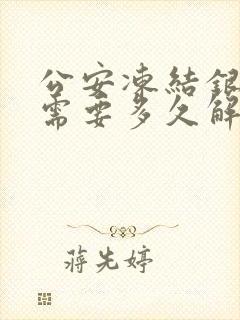 公安凍結銀
需要多久解
蔣先婷